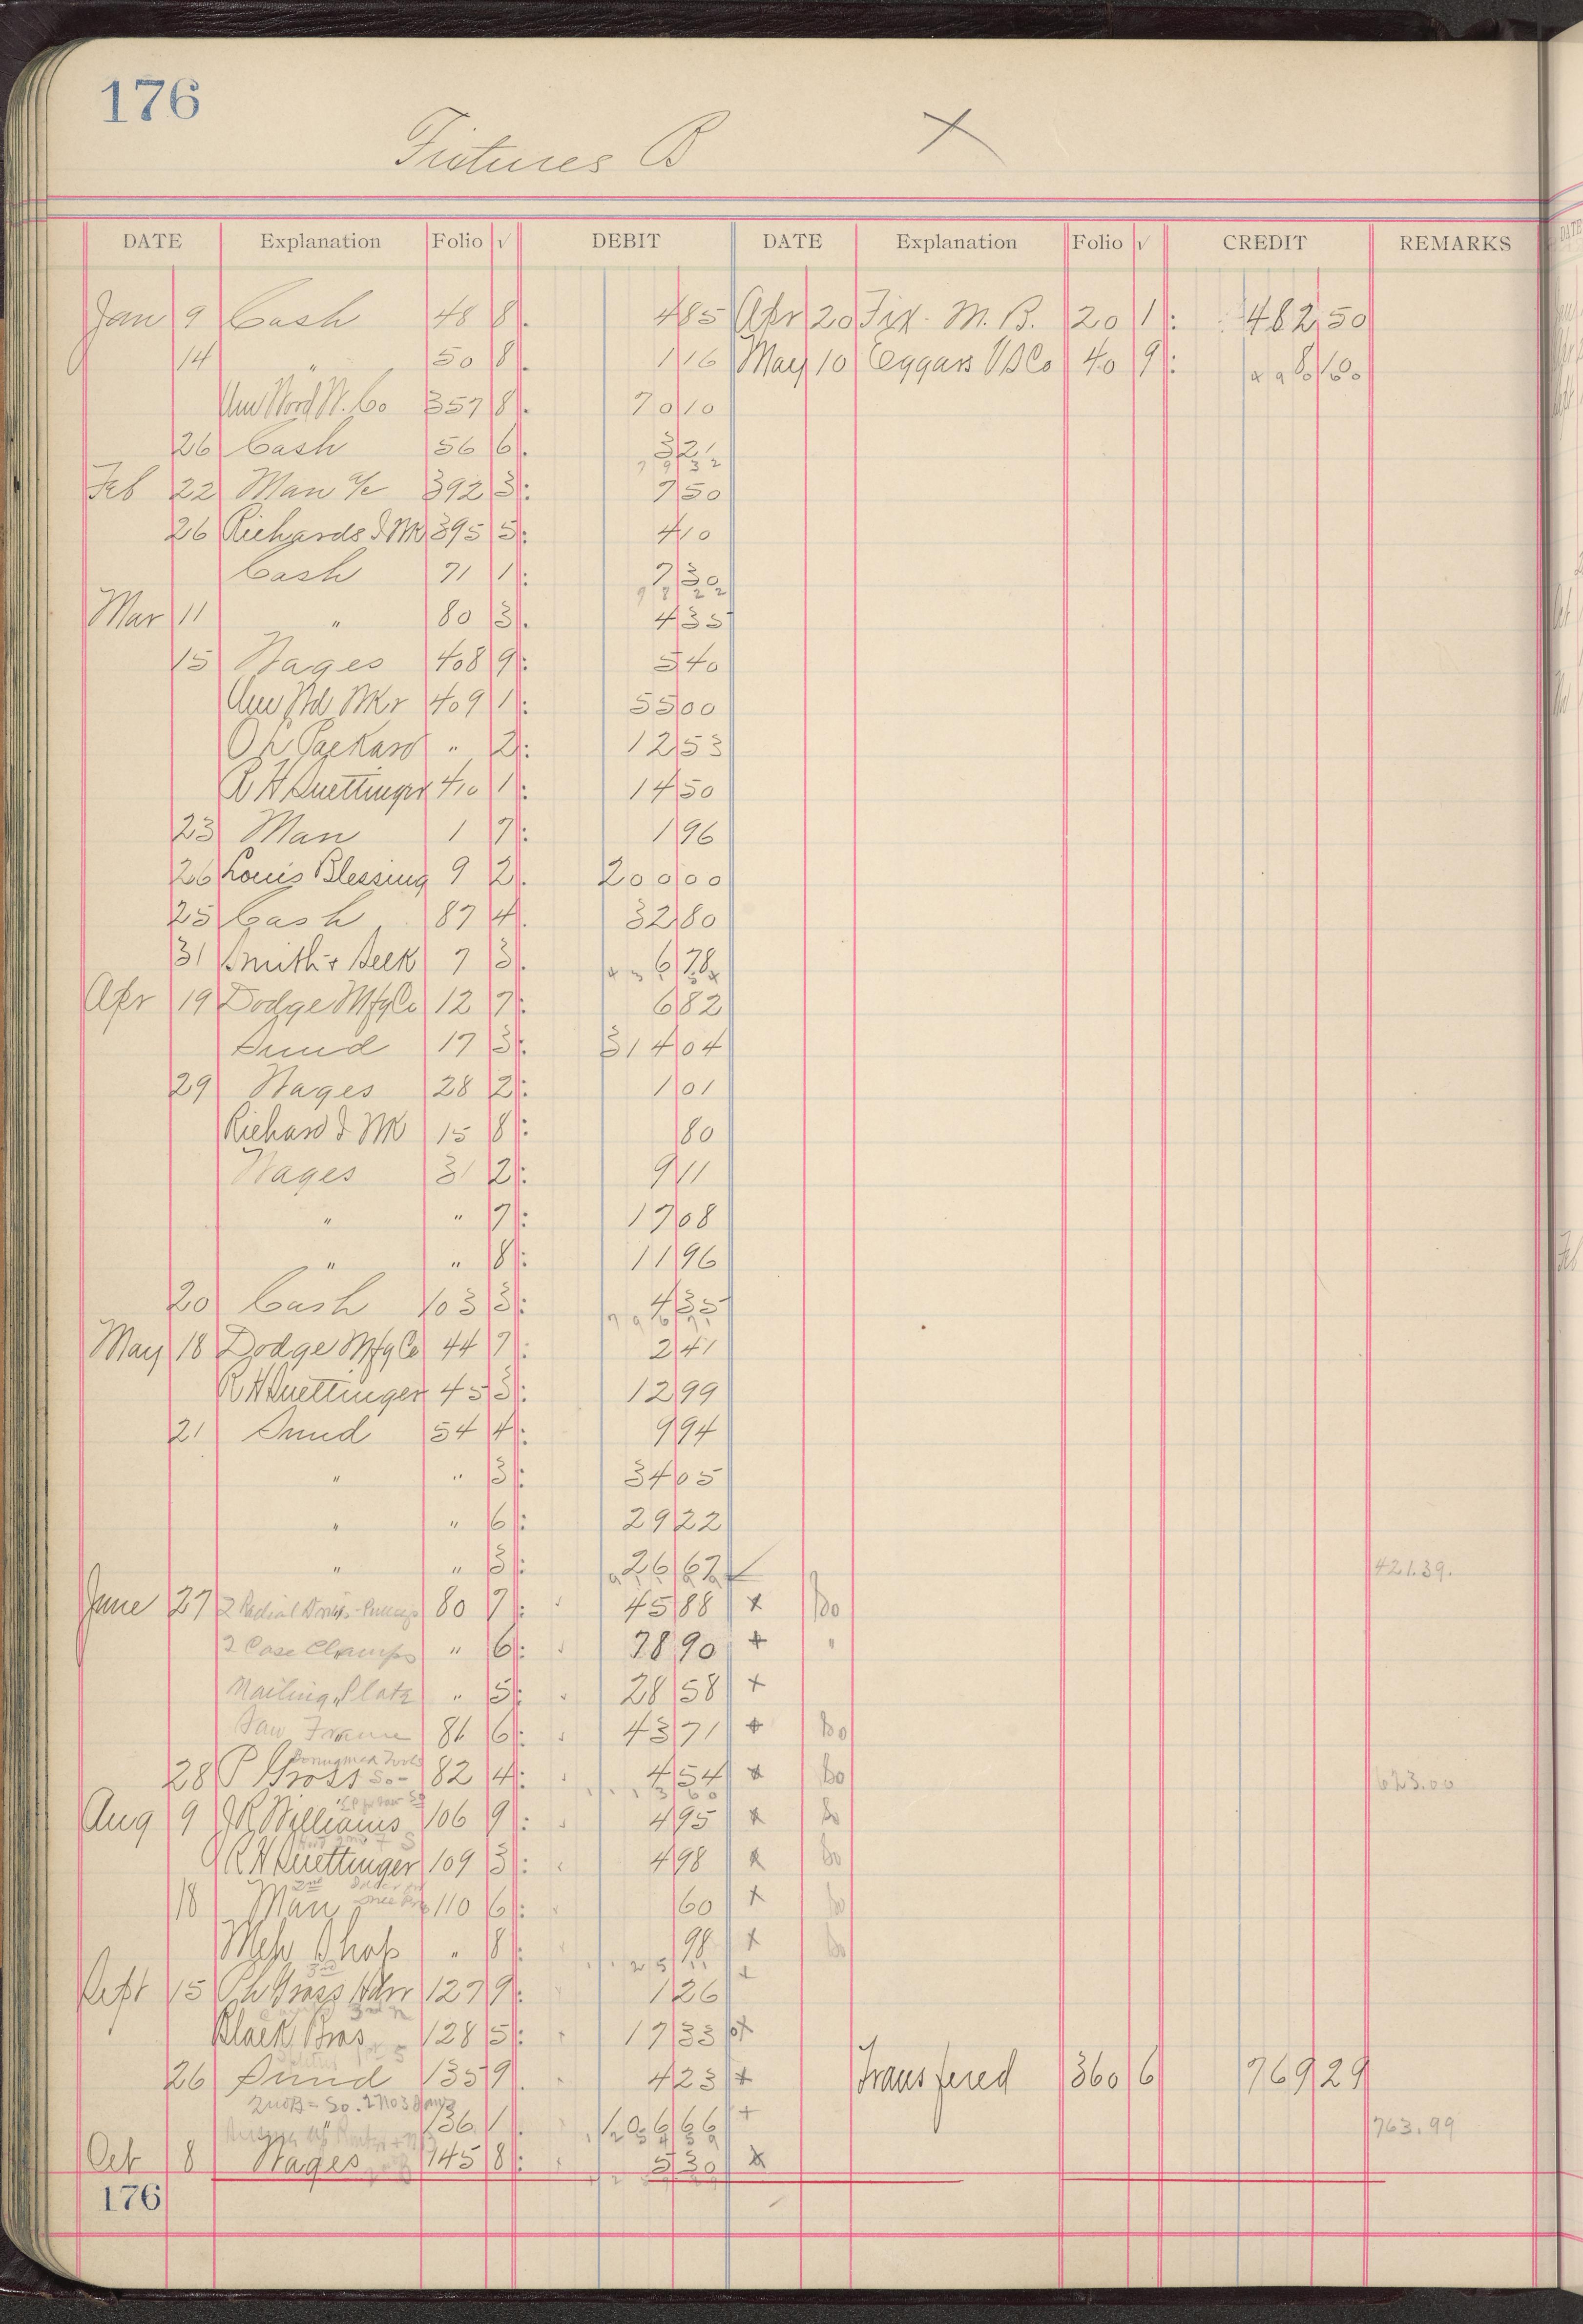 176
Fixtures B X
DATE Explanation Folio √ DEBIT DATE Explanation Folio √ CREDIT REMARKS
Jan 9 Cash 48 8 4 85 Apr 20 Fix. M. B. 20 1 482 50
14 " 50 8 1 16 May 10 Eggars V S Co 40 9 8 80
Am Wood W. Co 357 8 70 10
26 Cash 56 6 3 21
Feb 22 Man a/c 392 3 7 50
26 Richards I Mk 395 5 4 10
Cash 71 1 7 30
Mar 11 " 80 3 4 35
15 Wages 408 9 5 40
Am Wd Wkr 409 1 55 00
O L Packard " 2 12 53
R H Duettinger 410 1 14 50
23 Man 1 7 1 96
26 Louis Blessing 9 2 200 00
25 Cash 87 4 32 80
31 Smith + Seek 7 3 6 78
Apr 19 Dodge Mfg Co 12 7 6 82
Sund 17 3 314 04
29 Wages 28 2 1 01
Richard I Mk 15 8 80
Wages 31 2 9 11
" " 7 17 08
" " 8 11 96
20 Cash 103 3 4 35
May 18 Dodge Mfg Co 44 7 2 41
R H Duettinger 45 3 12 99
21 Sund 54 4 9 94
" " 3 34 05
" " 6 29 22
" " 3 26 67 √ 421.39.
June 27 2 Radial 80 7 45 88 x Bo
2 Case Clamps " 6 78 90 + "
Nailing Plate " 5 28 58 +
Saw Frame 86 6 43 71 + Bo
28 P Gross So- 82 4 4 54 x Bo 623.00
Aug 9 J R Williams 106 9 4 95 x Bo
R H Duettinger 109 3 4 98 x Bo
18 Man 110 6 60 x Bo
Meh Shop " 8 98 x Bo
Sept 15 Ph Gross Hdw 127 9 1 26 +
Black Bros 128 5 17 33 x
26 Sund 135 9 4 23 + Transfered 360 6 769 29
136 1 106 66 + 763.99
Oct 8 Wages 145 8 5 30 x
176